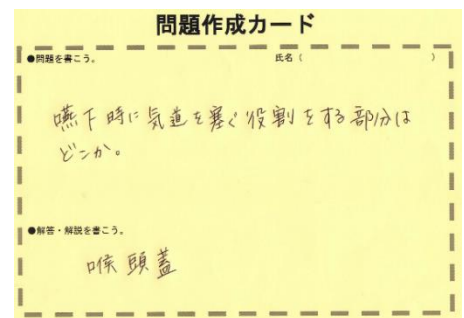 問題作成カード
●問題を書こう。 氏名（ ）
嚥下時に気道を塞ぐ役割をする部分は
どこか。
●解答・解説を書こう。
喉頭蓋